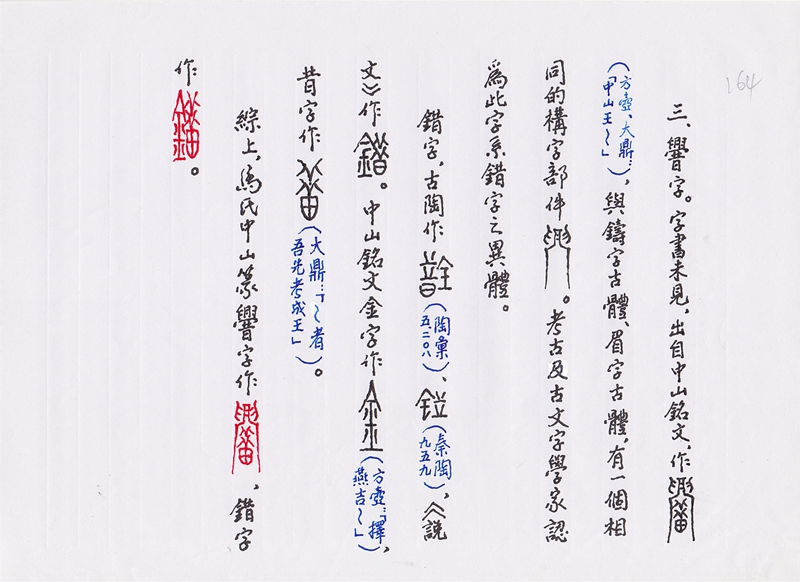 164
三、字。字書未見,出自中山銘文,作
(方壺、大鼎:「中山王~」),與鑄字古體、眉字古體,有一個相
同的構字部件。考古及古文字學家認
爲此字系錯字之異體。
錯字,古陶作(陶彙五·二〇八)、(秦陶九五九),《說
文》作。中山銘文金字作(方壺:「擇燕吉~」),
昔字作(大鼎:「~者吾先考成王」)。
綜上,馬氏中山篆字作,錯字
作。